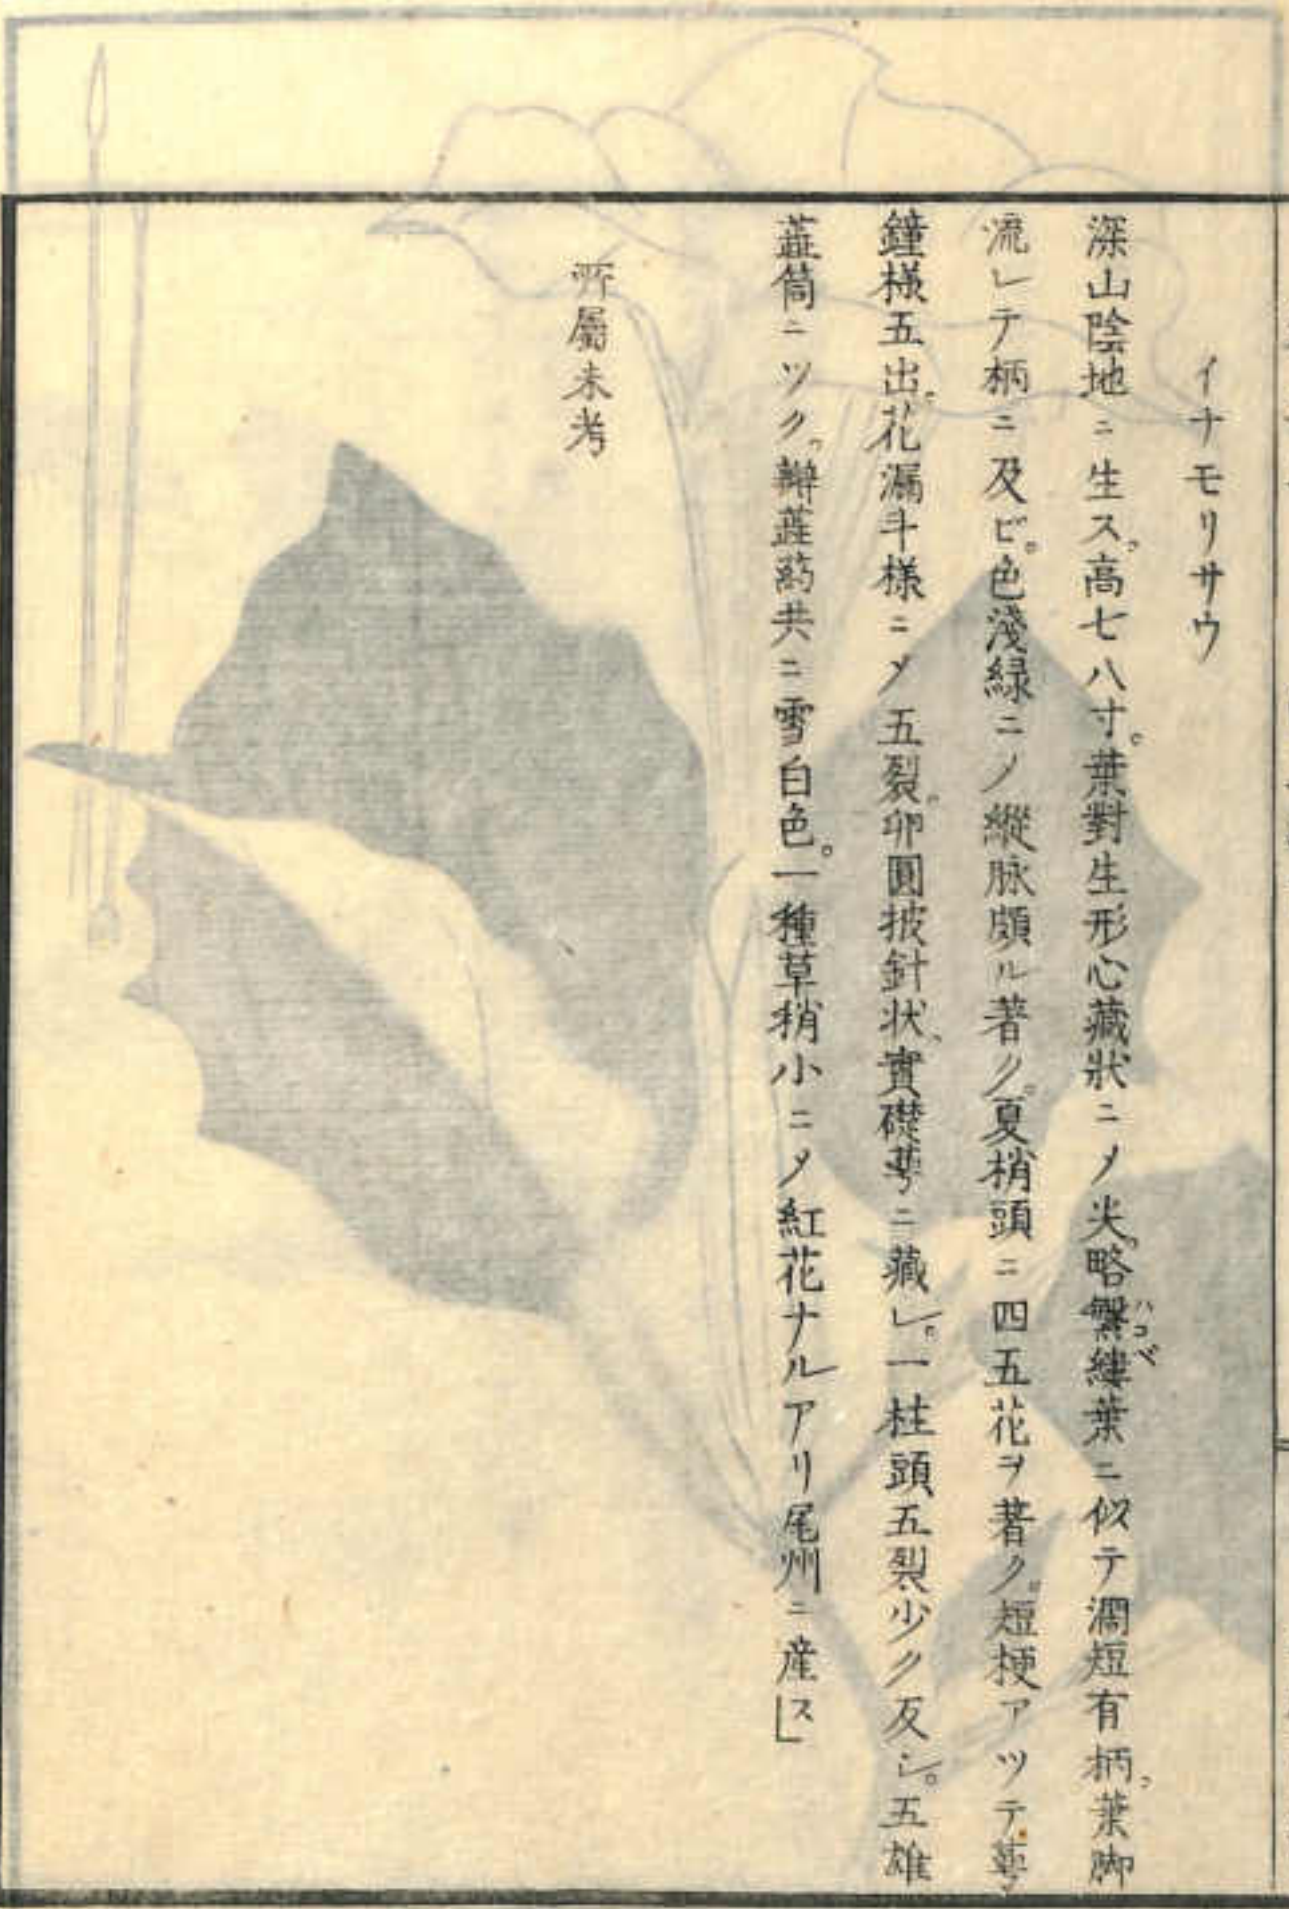 イナモリサウ
深山陰地ニ生ス。高七八寸。葉對生形心藏狀ニメ尖。略繁縷葉ニ似テ濶短有柄。葉脚
ハコベ
流レテ柄ニ及ビ。色淺緑ニノ縱脉頗ル著ク。夏梢頭ニ四五花ヲ著ク。短梗アツテ萼
鐘様五出。花漏斗様ニメ五裂。卵圓披針状、實礎萼ニ藏レ。一柱頭五裂少ク反シ。五雄
蕋筒ニツク。瓣蕋葯共ニ雪白色。一種草稍小ニメ紅花ナルアリ尾州ニ産ス」
所屬未考